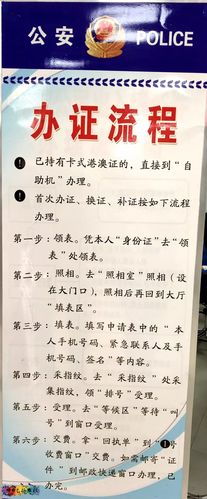 公安 POLICE
办证流程
! 已持有卡式港澳证的，直接到“自
助机”办理。
! 首次办证、换证、补证按如下流程
办理。
第一步：领表。凭本人“身份证”去“领
表”处领表。
第二步：照相。去“照相室”照相（设
在大门口），照相后再回到大厅
“填表区”。
第三步：填表。填写申请表中的“本
人手机号码、紧急联系人及手
机号码、签名”等内容。
第四步：采指纹。去“采指纹”处采
集指纹，领“排号”受理。
第五步：受理。去“等候区”等待“叫
号”到窗口受理。
第六步：交费。拿“回执单”到“号
收费窗口”交费。如需邮寄“证
件”到邮政快递窗口办理，已
办完。